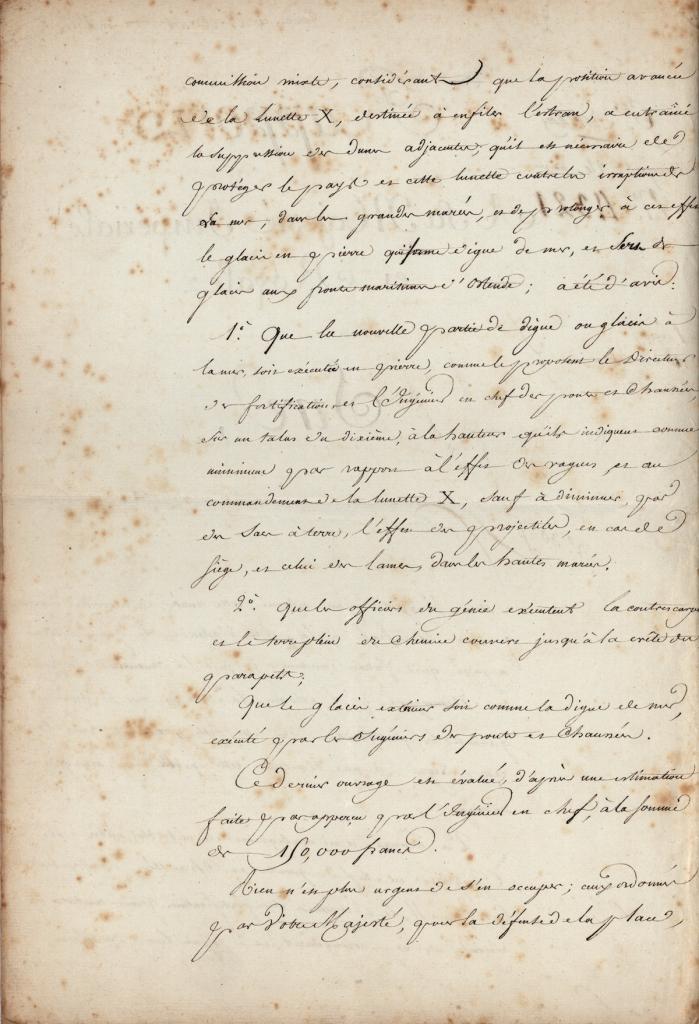 commission mixte, considérant que la position avancée
de la lunette X, destinée à enfiler l'estran, a entrainé
la suppression des dunes adjacentes, qu'il est nécessaire de
protéger le pays et cette lunette contre les irruptions de
la mer, dans les grandes marées, et de prolonger à cet effet
le glacis en pierre qui forme digue de mer, et sert de
glacis aux fronts maritimes d'Ostende; a été d'avis:
1.° Que la nouvelle partie de digue ou glacis à
la mer, soit exécutée en pierre, comme le proposent le Directeur
des fortifications et l'Ingénieur en chef des ponts et Chaussées,
sur un talus du dixième, à la hauteur qu'ils indiquent comme
minimum par rapport à l'effet des vagues et au
commandement de la lunette X, sauf à diminuer, par
des sacs à terre, l'effet des projectiles, en cas de
siège, et celui des lames, dans les hautes marées.
2.° que les officiers du génie exécutent la contrescarpe
et le terreplein du chemin couvert jusqu'à la crête du
parapet;
Que le glacis extérieur soit comme la digue de mer,
exécuté par les Ingénieurs des ponts et Chaussées.
Ce dernier ouvrage est évalué, d'après une estimation
faite par apperçu par l'Ingénieur en chef, à la somme
de 150,000 francs.
Rien n'est plus urgent de s'en occuper; ceux ordonnés
par Votre Majesté, pour la défense de la place,